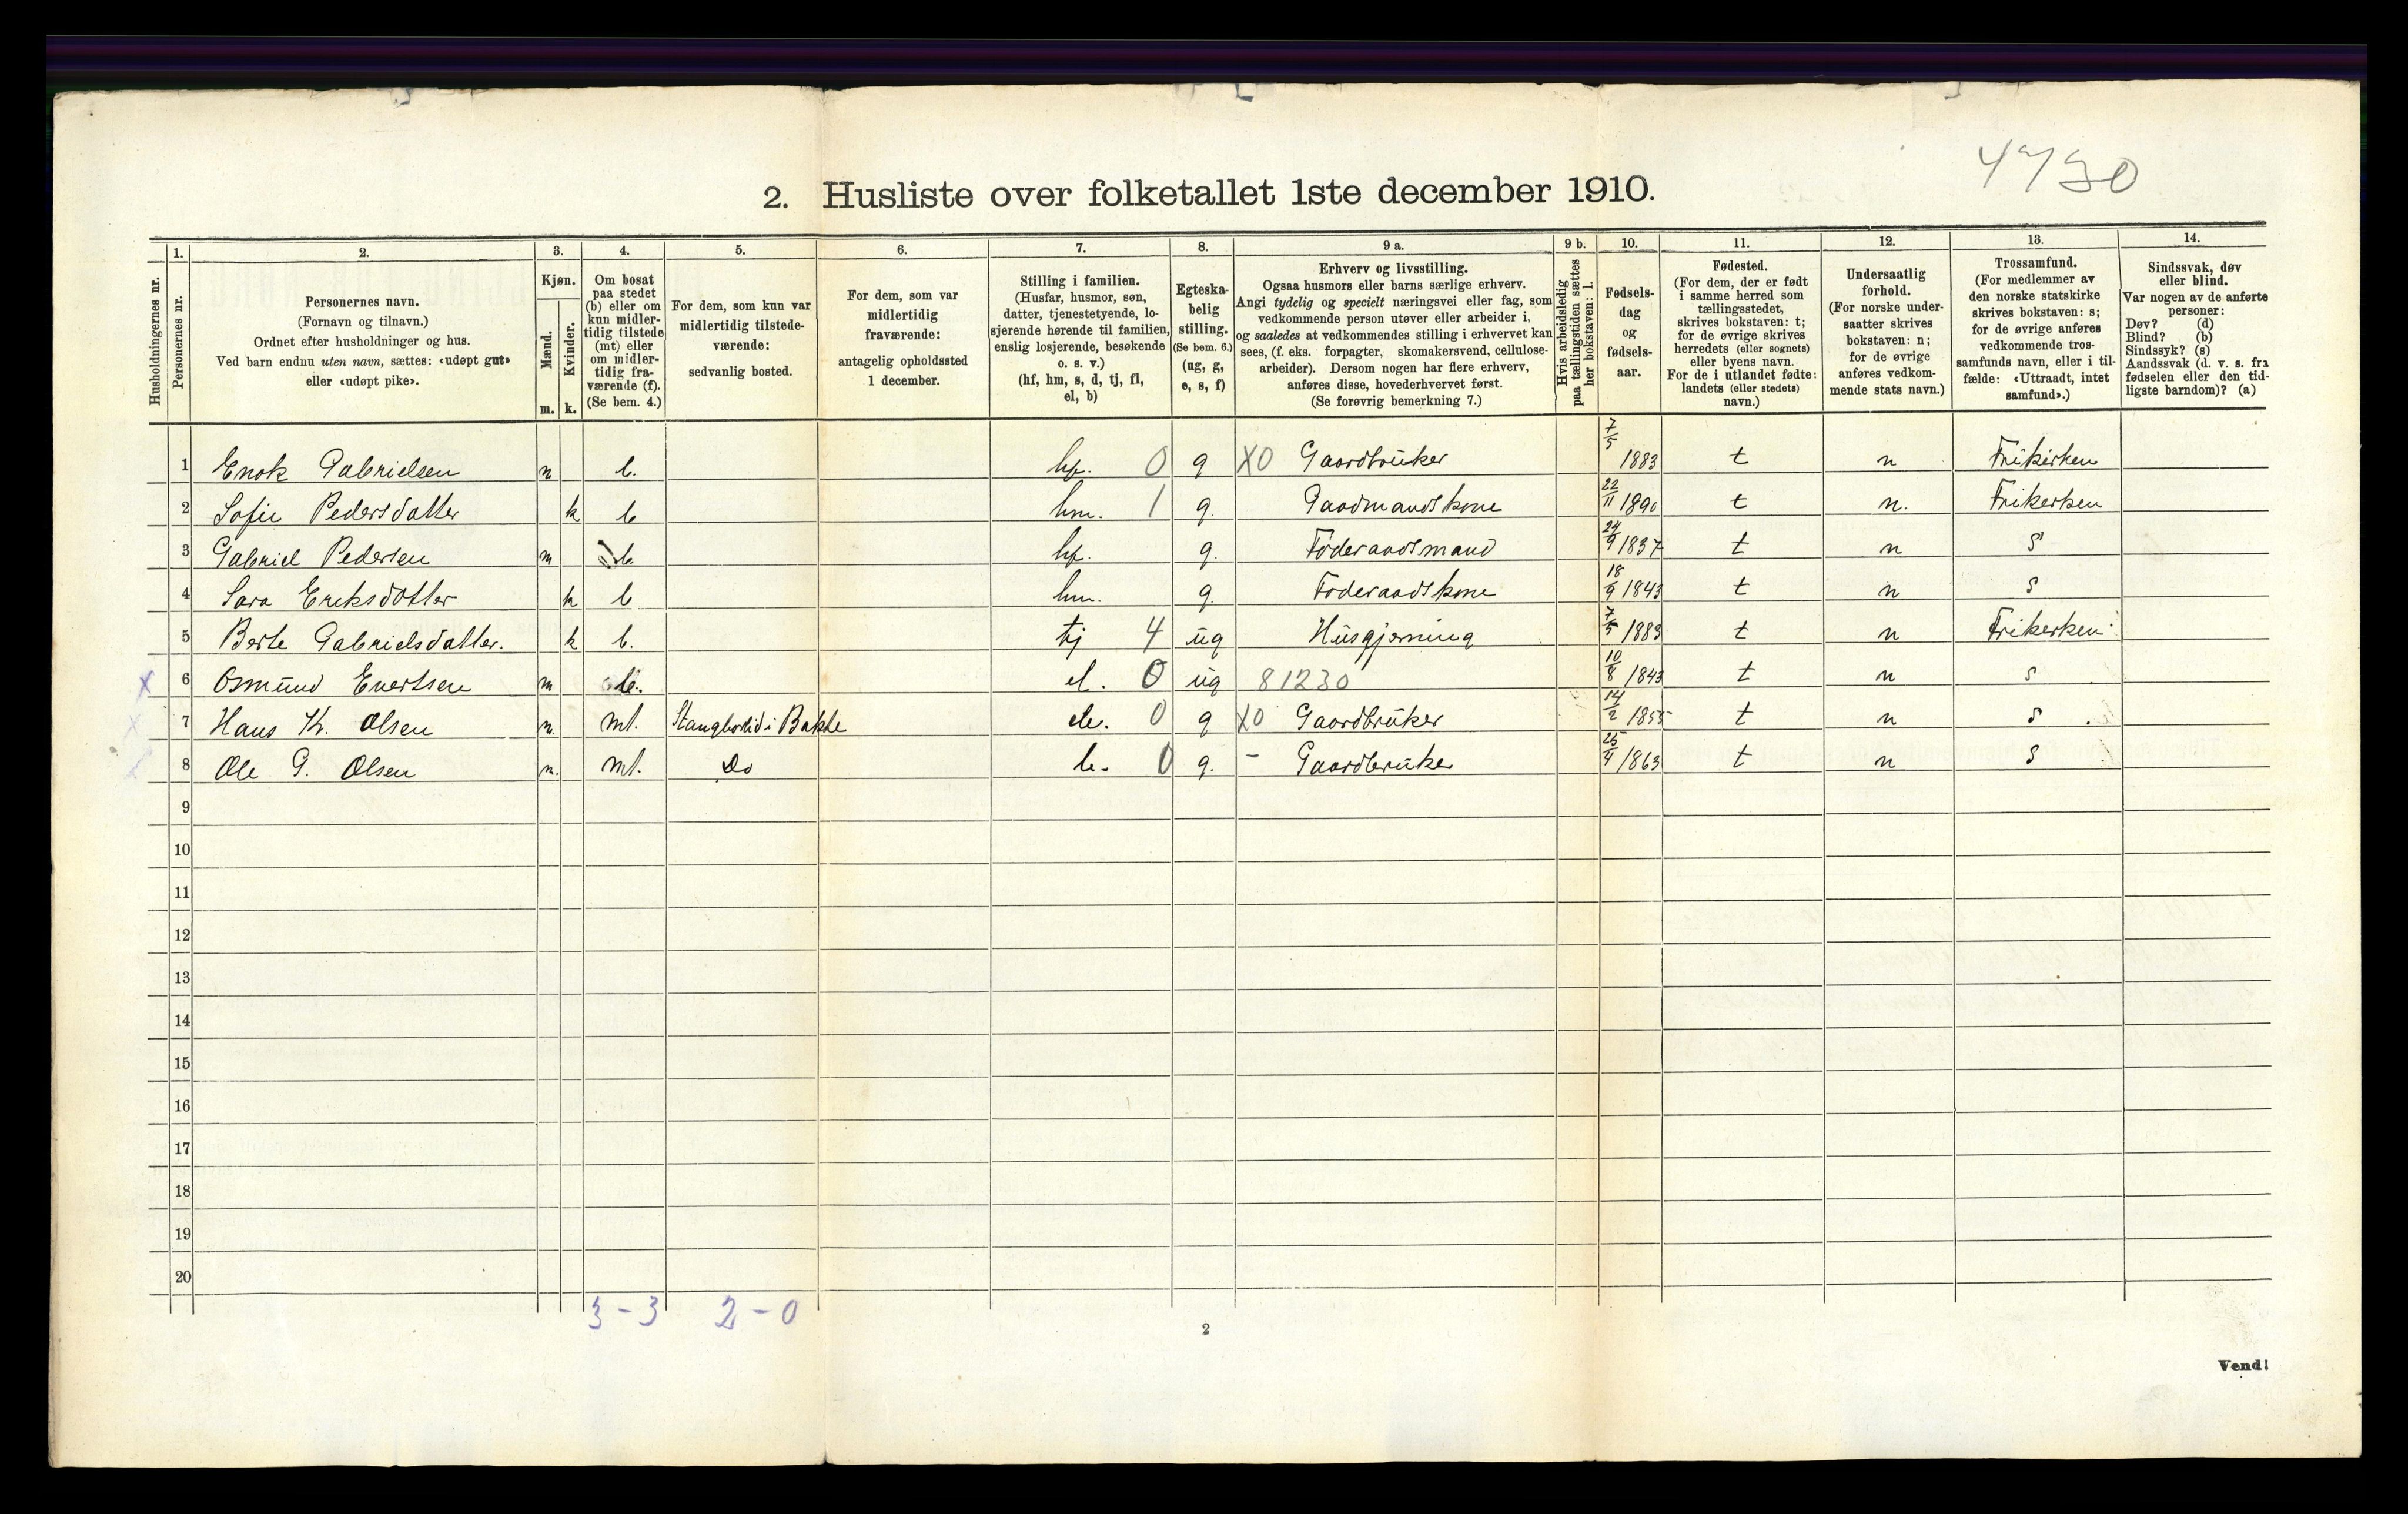 4730
2. Husliste over folketallet 1ste december 1910.
Husholdningernes nr.
1. Personernes nr.
2. Personernes navn.
(Fornavn og tilnavn.)
Ordnet efter husholdninger og hus.
Ved barn endnu uten navn, sættes: «udøpt gut»
eller «udøpt pike».
3. Kjøn.
Mænd. m.
Kvinder. k.
4. Om bosat
paa stedet
(b) eller om
kun midler-
tidig tilstede
(mt) eller
om midler-
tidig fra-
værende (f).
(Se bem. 4.)
5. For dem, som kun var
midlertidig tilstede-
værende:
sedvanlig bosted.
6. For dem, som var
midlertidig
fraværende:
antagelig opholdssted
1 december.
7. Stilling i familien.
(Husfar, husmor, søn,
datter, tjenestetyende, lo-
sjerende hørende til familien,
enslig losjerende, besøkende
o. s. v.)
(hf, hm, s, d, tj, fl,
el, b)
8. Egteska-
belig
stilling.
(Se bem. 6.)
(ug, g,
e, s, f)
9 a. Erhverv og livsstilling.
Ogsaa husmors eller barns særlige erhverv.
Angi tydelig og specielt næringsvei eller fag, som
vedkommende person utøver eller arbeider i,
og saaledes at vedkommendes stilling i erhvervet kan
sees, (f. eks. forpagter, skomakersvend, cellulose-
arbeider). Dersom nogen har flere erhverv,
anføres disse, hovederhvervet først.
(Se forøvrig bemerkning 7.)
9 b. Hvis arbeidsledig
paa tællingstiden sættes
her bokstaven: l.
10. Fødsels-
dag
og
fødsels-
aar.
11. Fødested.
(For dem, der er født
i samme herred som
tællingsstedet,
skrives bokstaven: t;
for de øvrige skrives
herredets (eller sognets)
eller byens navn.
For de i utlandet fødte:
landets (eller stedets)
navn.)
12. Undersaatlig
forhold.
(For norske under-
saatter skrives
bokstaven: n;
for de øvrige
anføres vedkom-
mende stats navn.)
13. Trossamfund.
(For medlemmer av
den norske statskirke
skrives bokstaven: s;
for de øvrige anføres
vedkommende tros-
samfunds navn, eller i til-
fælde: «Uttraadt, intet
samfund».)
14. Sindssvak, døv
eller blind.
Var nogen av de anførte
personer:
Døv? (d)
Blind? (b)
Sindssyk? (s)
Aandssvak (d. v. s. fra
fødselen eller den tid-
ligste barndom)? (a)
1 Enok Gabrielsen m b. hf. 0 g X0 Gaardbruker 7/5 1883 t n Frikirken
2 Sofie Pedersdatter k b hm. 1 g. Gaadmandskone 22/11 1890 t n. Frikerken
3 Gabriel Pedersen m b. hf. g. Föderaadsmand 24/9 1837 t n s
4 Sara Eriksdotter k b hm. g. Foderaadskone 18/9 1843 t n s
5 Berte Gabrielsdatter. k b. tj 4 ug Husgjerning 7/5 1883 t n Frikerken
x 6 Osmund Evertsen m b. el. 0 ug 81230 10/8 1843 t n s
x 7 Hans Th. Olsen m. mt. Stangborlid i Bakke b. 0 g X0 Gaardbruker 14/2 1855 t n s
8 Ole G. Olsen m. mt. Do b. 0 g. - Gaardbruker 25/4 1863 t n s
9
10
11
12
13
14
15
16
17
18
19
20
3 - 3 2 - 0
2
Vend!